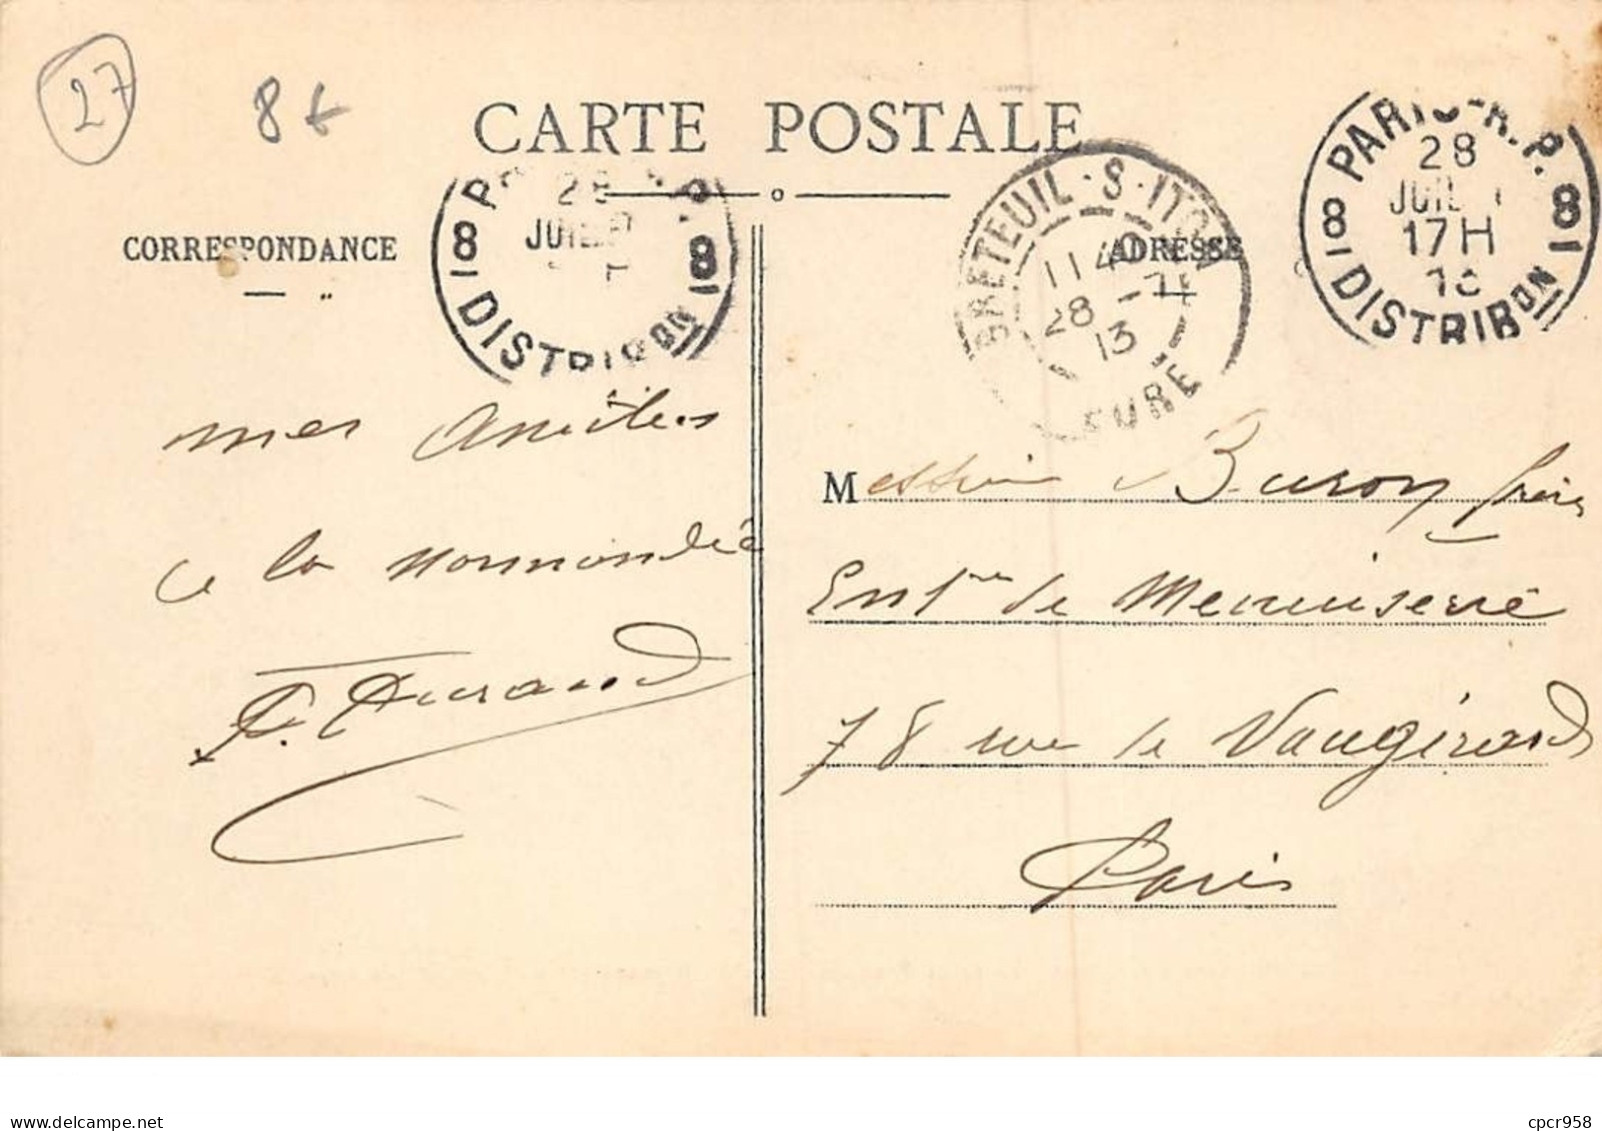 27
8€
CARTE POSTALE
CORRESPONDANCE
ADRESSE
28
JUILET
8 8
DISTRIBON
BRETEUIL-S-ITON
11 40
28 -7
13
EURE
PARIS-R.P.
28
JUILT
17H
13
8 8
DISTRIBON
mes Amitiés
de la Normandie
Durand
Messieurs Buron frères
Entr de Menuiserie
78 rue de Vaugirard
Paris
delcampe.net
cpcr958